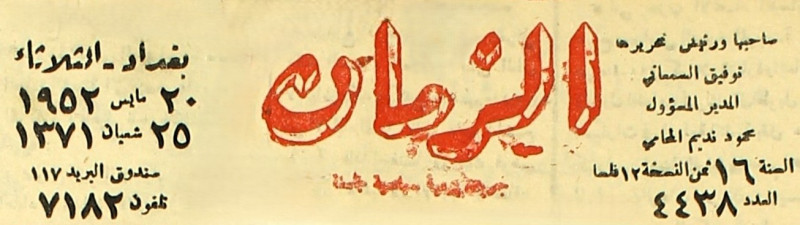 صاحبها ورئيس تحريرها
توفيق السمعاني
المدير المسؤول
محمود نديم المحامي
السنة ١٦ ثمن النسخة ١٢ فلسا
العدد ٤٤٣٨
الزمان
جريدة يومية سياسية
بغداد - الثلاثاء
٢٠ مايس ١٩٥٢
٢٥ شعبان ١٣٧١
صندوق البريد ١١٧
تلفون ٧١٨٢